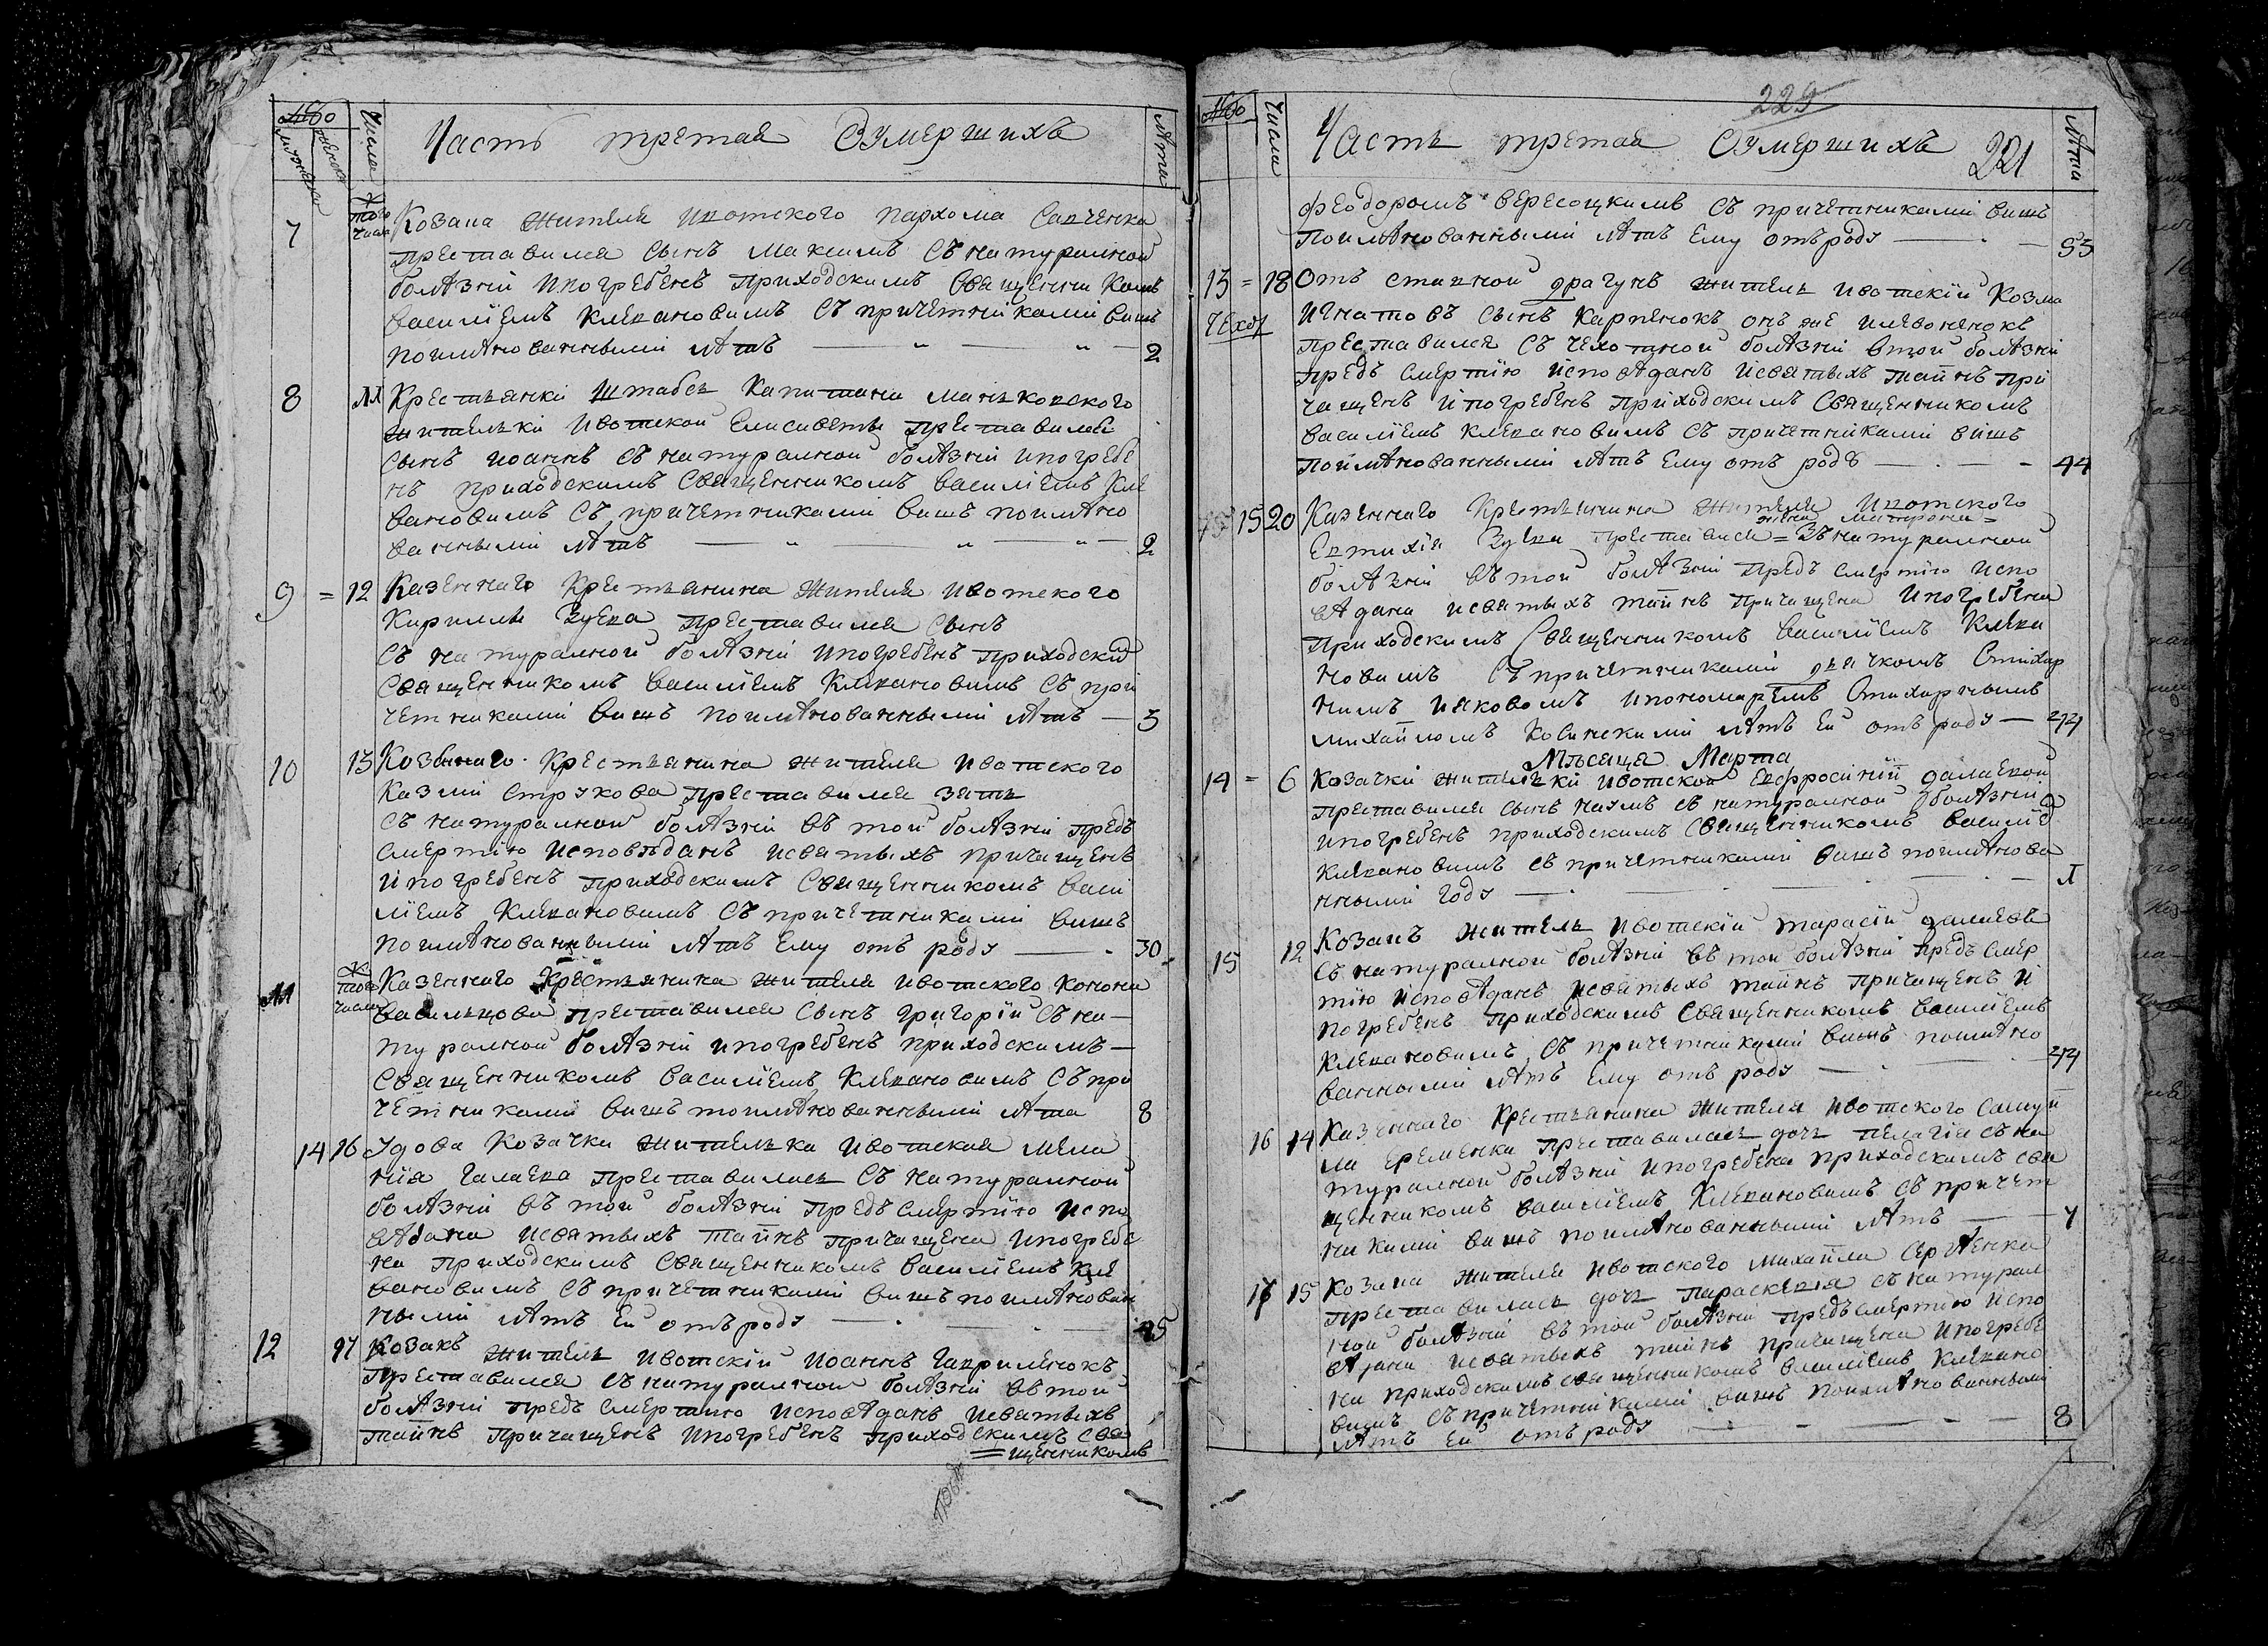 № Числа Часть третая Оумершихъ Лета
мужеска женска
7 того числа Козака жителя ивотского пархома Савченка
преставился сынъ максимъ съ натуралной
болѣзнїи ипогребенъ приходскимъ Священникомъ
василїемъ клевановимъ съ причетникамїи вишъ
поимѣнованнымїи лѣтъ 2
8 Крестьянки Штабсъ Капитана маньковского
жительки ивотской Елисаветы преставился
сынъ иоаннъ съ натуралной болѣзнїи ипогребе
нъ приходскимъ Священникомъ василїемъ Кле
вановимъ съ причетникамїи вишъ поимѣно
ваннымїи лѣтъ 2
9 = 12 Казенного крестьянина жителя ивотского
Кирилла Зуева преставился сынъ
съ натуралной болѣзнїи ипогребенъ приходскїй
Священникомъ василїемъ Клевановимъ съ при
четникамїи вишъ поимѣнованнымїи лѣтъ 3
10 13 Казенного крестьянина жителя ивотского
Казмїи струкова преставился зять
съ натуралной болѣзнїи въ той болѣзнїи предъ
смертїю исповѣданъ исвятыхъ причащенъ
ипогребенъ приходскимъ Священникомъ васи
лїемъ Клевановимъ съ причетникамїи вишъ
поимѣнованнымїи лѣтъ Ему отъ роду 30
11 того числа Казенного крестьянина жителя ивотского Конона
преставился сынъ григорїй съ на
туралной болѣзнїи ипогребенъ приходскимъ
Священникомъ василїемъ Клевановимъ съ при
четникамїи вишъ поимѣнованнымїи лѣта 8
14 16 Удова козачка жителька ивотская мела
нїя Галаева преставилась съ натуралной
болѣзнїи въ той болѣзнїи предъ смертїю испо
вѣдана исвятыхъ тайнъ причащена ипогребе
на приходскимъ Священникомъ василїемъ кле
вановимъ съ причетникамїи вишъ поимѣнован
нымїи лѣтъ Ей отъ роду
12 17 Козакъ житель ивотскїй иоаннъ Гавриленокъ
преставился съ натуралной болѣзнїи въ той
болѣзнїи предъ смертїю исповѣданъ исвятыхъ
тайнъ причащенъ ипогребенъ приходскимъ свя
щенникомъ
229
№ Числа Часть третая Оумершихъ 221 Лета
феодоромъ вересоцкимъ съ причетникамїи вишъ
поимѣнованнымїи лѣтъ Ему отъ роду 53
13 = 18 Отъ ставной драгунъ житель ивотскїй Козма
игнатовъ сынъ Карпенокъ онъ же
преставился съ чехотной болѣзнїи втой болѣзнїи
предъ смертїю исповѣданъ исвятыхъ тайнъ при
чащенъ ипогребенъ приходскимъ Священникомъ
василїемъ клевановимъ съ причетникамїи вишъ
поимѣнованнымїи лѣтъ Ему отъ роду 44
15 20 Казенного крестьянина жителя ивотского
жена матрона
Евтихїя Зуева преставися съ натуралной
болѣзнїи въ той болѣзнїи предъ смертїю испо
вѣдана исвятыхъ тайнъ причащена ипогребена
приходскимъ Священникомъ василїемъ Клева
новимъ съ причетникамїи дьячкомъ Стихар
нимъ ияковомъ ипономаремъ Стихарнымъ
михайломъ Косинскимїи лѣтъ Ей отъ роду
Мѣсяца Марта
14 = 6 Козачкїи жителькїи ивотской Евфросинїи галаевой
преставился сынъ наумъ съ натуралной болѣзнїи
ипогребенъ приходскимъ Священникомъ
клевановимъ съ причетникамїи вишъ поимѣнова
ннымїи году
15 12 Козакъ житель ивотскїй тарасїй галаевъ
съ натуралной болѣзнїи въ той болѣзнїи предъ смер
тїю исповѣданъ исвятыхъ тайнъ причащенъ и
погребенъ приходскимъ Священникомъ василїемъ
Клевановимъ съ причетникамїи вишъ поимѣно
ваннымїи лѣтъ Ему отъ роду
16 14 Казенного крестьянина жителя ивотского Самуй
ла Еременка преставилась дочь пелагїя съ на
туралной болѣзнїи ипогребена приходскимъ свя
щенникомъ василїемъ Клевановимъ съ причет
никамїи вишъ поимѣнованнымїи лѣтъ
17 15 Козака жителя ивотского михайла Сергѣенка
преставилась дочь параскевїя съ натурал
ной болѣзнїи въ той болѣзнїи предъ смертїю испо
вѣдана исвятыхъ тайнъ причащена ипогребе
на приходскимъ священникомъ василїемъ клевано
вимъ съ причетникамїи вишъ поимѣнованнымїи
лѣтъ Ей отъ роду 8